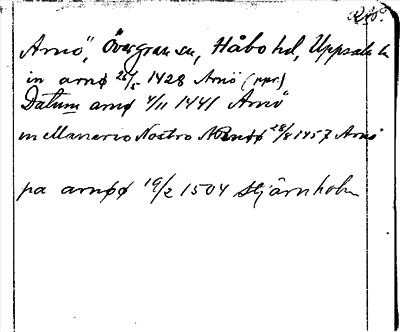 Arnö, Övergran sn, Håbo hd, Uppsala ln
in arnø 25/5 1428 Arnö (ppr.)
Datum arnø 4/11 1441 Arnö
in Manerio Nostro Arnøø 28/8 1457 Arnö
pa arnøø 19/2 1504 Stjärnholm